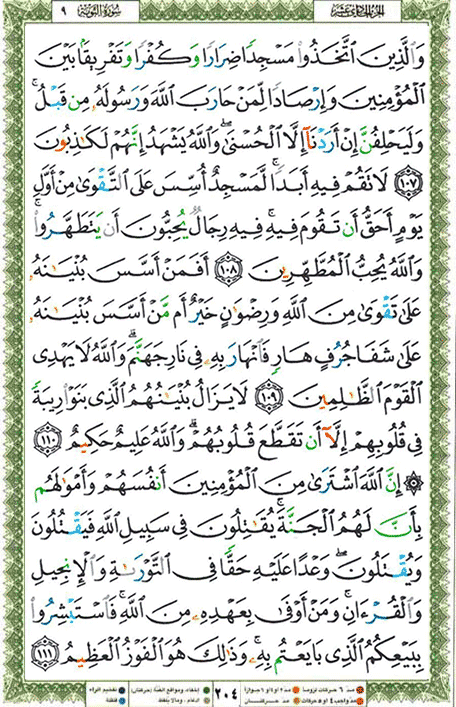 الجزء الحادي عشر سورة التوبة ٩
وَالَّذِينَ اتَّخَذُوا مَسْجِدًا ضِرَارًا وَكُفْرًا وَتَفْرِيقًا بَيْنَ
الْمُؤْمِنِينَ وَإِرْصَادًا لِّمَنْ حَارَبَ اللَّهَ وَرَسُولَهُ مِن قَبْلُ ۚ
وَلَيَحْلِفُنَّ إِنْ أَرَدْنَا إِلَّا الْحُسْنَىٰ ۖ وَاللَّهُ يَشْهَدُ إِنَّهُمْ لَكَاذِبُونَ
﴿١٠٧﴾ لَا تَقُمْ فِيهِ أَبَدًا ۚ لَّمَسْجِدٌ أُسِّسَ عَلَى التَّقْوَىٰ مِنْ أَوَّلِ
يَوْمٍ أَحَقُّ أَن تَقُومَ فِيهِ ۚ فِيهِ رِجَالٌ يُحِبُّونَ أَن يَتَطَهَّرُوا ۚ
وَاللَّهُ يُحِبُّ الْمُطَّهِّرِينَ ﴿١٠٨﴾ أَفَمَنْ أَسَّسَ بُنْيَانَهُ
عَلَىٰ تَقْوَىٰ مِنَ اللَّهِ وَرِضْوَانٍ خَيْرٌ أَم مَّنْ أَسَّسَ بُنْيَانَهُ
عَلَىٰ شَفَا جُرُفٍ هَارٍ فَانْهَارَ بِهِ فِي نَارِ جَهَنَّمَ ۗ وَاللَّهُ لَا يَهْدِي
الْقَوْمَ الظَّالِمِينَ ﴿١٠٩﴾ لَا يَزَالُ بُنْيَانُهُمُ الَّذِي بَنَوْا رِيبَةً
فِي قُلُوبِهِمْ إِلَّا أَن تَقَطَّعَ قُلُوبُهُمْ ۗ وَاللَّهُ عَلِيمٌ حَكِيمٌ ﴿١١٠﴾
۞ إِنَّ اللَّهَ اشْتَرَىٰ مِنَ الْمُؤْمِنِينَ أَنفُسَهُمْ وَأَمْوَالَهُم
بِأَنَّ لَهُمُ الْجَنَّةَ ۚ يُقَاتِلُونَ فِي سَبِيلِ اللَّهِ فَيَقْتُلُونَ
وَيُقْتَلُونَ ۖ وَعْدًا عَلَيْهِ حَقًّا فِي التَّوْرَاةِ وَالْإِنجِيلِ
وَالْقُرْآنِ ۚ وَمَنْ أَوْفَىٰ بِعَهْدِهِ مِنَ اللَّهِ ۚ فَاسْتَبْشِرُوا
بِبَيْعِكُمُ الَّذِي بَايَعْتُم بِهِ ۚ وَذَٰلِكَ هُوَ الْفَوْزُ الْعَظِيمُ ﴿١١١﴾
٢٠٤